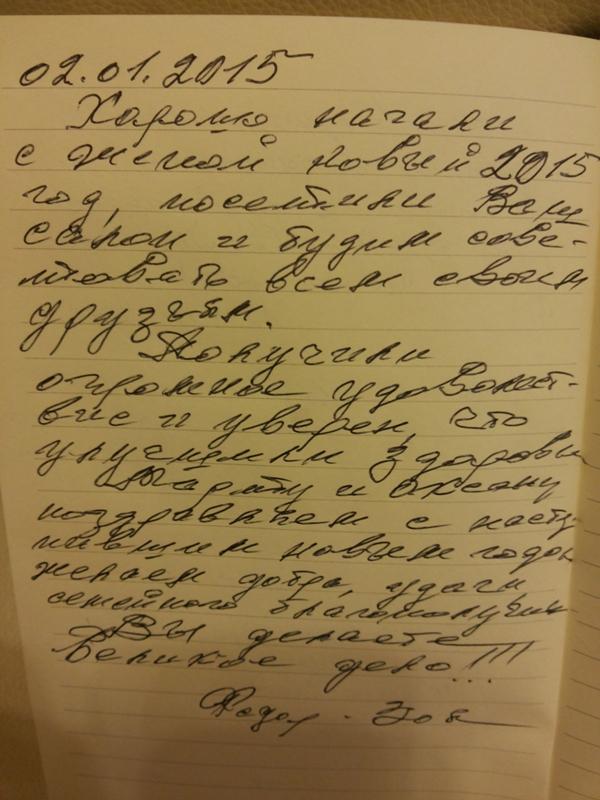 02.01.2015
Хорошо начали
с женой новый 2015
год, посетили Ваш
салон и будим сове-
товать всем своим
друзьям.
Получили
огромное удовольст-
вие и уверен, что
улучшили здоровье
и Оксану
поздравляем с насту-
пившим новым годом
желаем добра, удачи,
семейного благополучия
Вы делаете
великое дело!!!